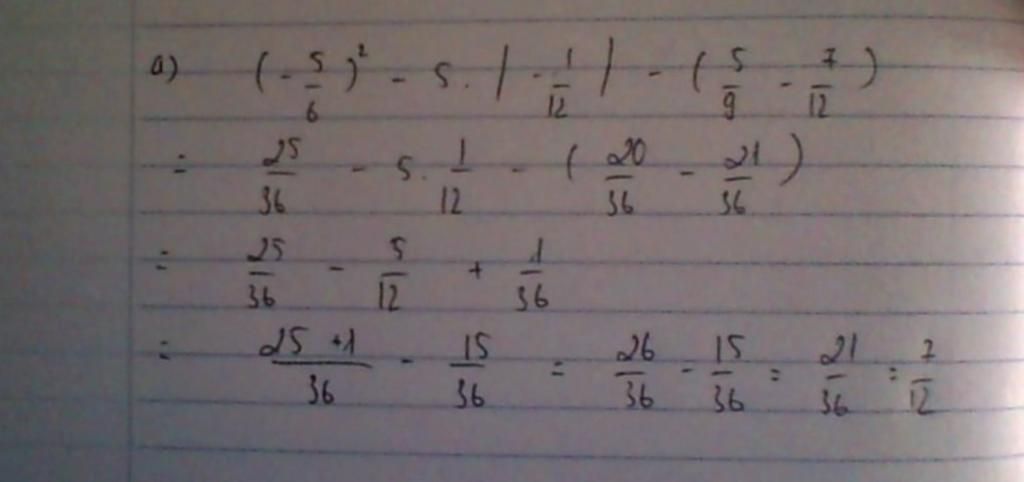 a) (-5/6)² - 5 . |-1/12| - (5/9 - 7/12)
= 25/36 - 5 . 1/12 - (20/36 - 21/36)
= 25/36 - 5/12 + 1/36
= 25+1/36 - 15/36 = 26/36 - 15/36 = 21/36 = 7/12